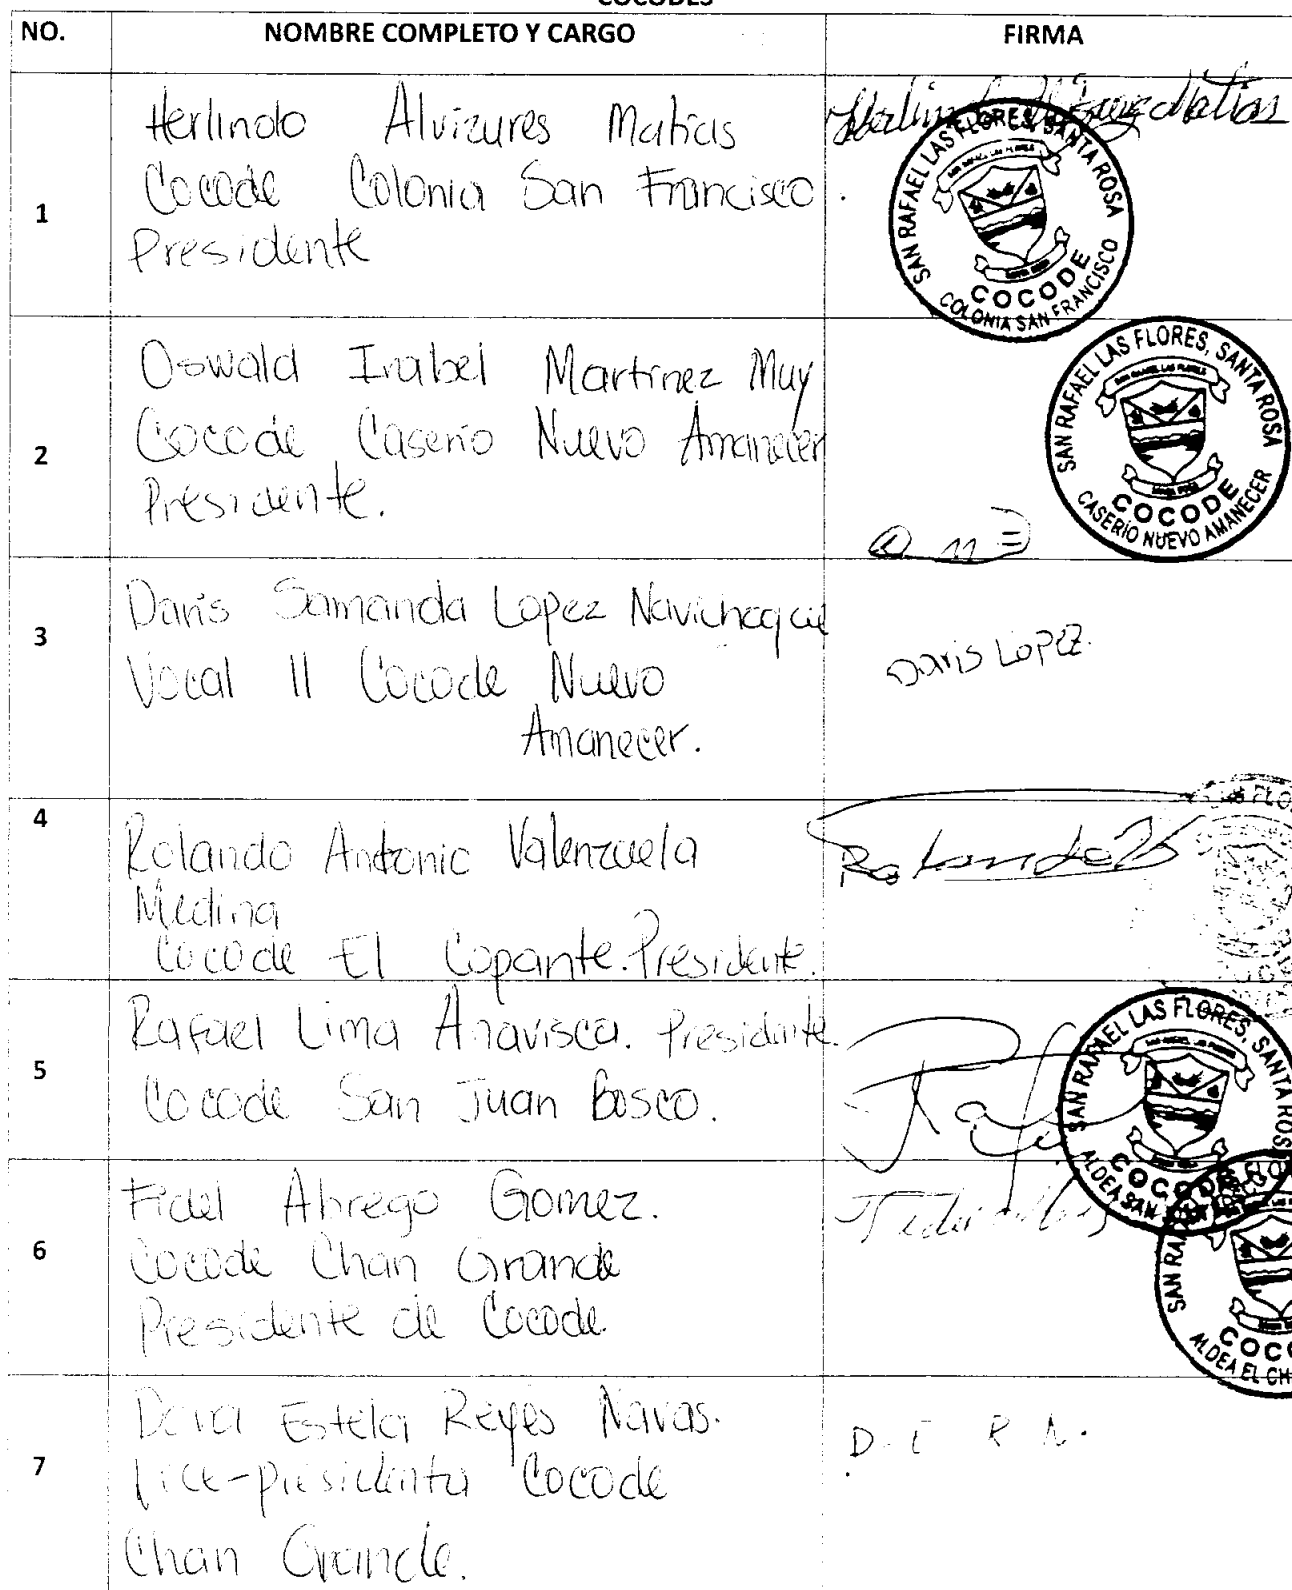 COCODES
NO. NOMBRE COMPLETO Y CARGO FIRMA
1
Herlindo Alvizures Matias
Cocode Colonia San Francisco.
Presidente
SAN RAFAEL LAS FLORES, SANTA ROSA
COCODE
COLONIA SAN FRANCISCO
2
Oswald Inabel Martinez Muy
Cocode Caserio Nuevo Amanecer
Presidente.
SAN RAFAEL LAS FLORES, SANTA ROSA
COCODE
CASERIO NUEVO AMANECER
3
Daris Samanda Lopez
Vocal II Cocode Nuevo
Amanecer.
Daris Lopez.
4
Rolando Antonio Valenzuela
Medina
Cocode El Copante. Presidente.
Rolando
5
Rafael Lima Anavisca. Presidente.
Cocode San Juan Bosco.
SAN RAFAEL LAS FLORES, SANTA ROSA
COCODE
ALDEA SAN
6
Fidel Abrego Gomez.
Cocode Chan Grande
Presidente de Cocode.
SAN RA
COCO
ALDEA EL CH
7
Estela Reyes Navas.
Vice-presidenta Cocode
Chan Grande.
D. E R N.